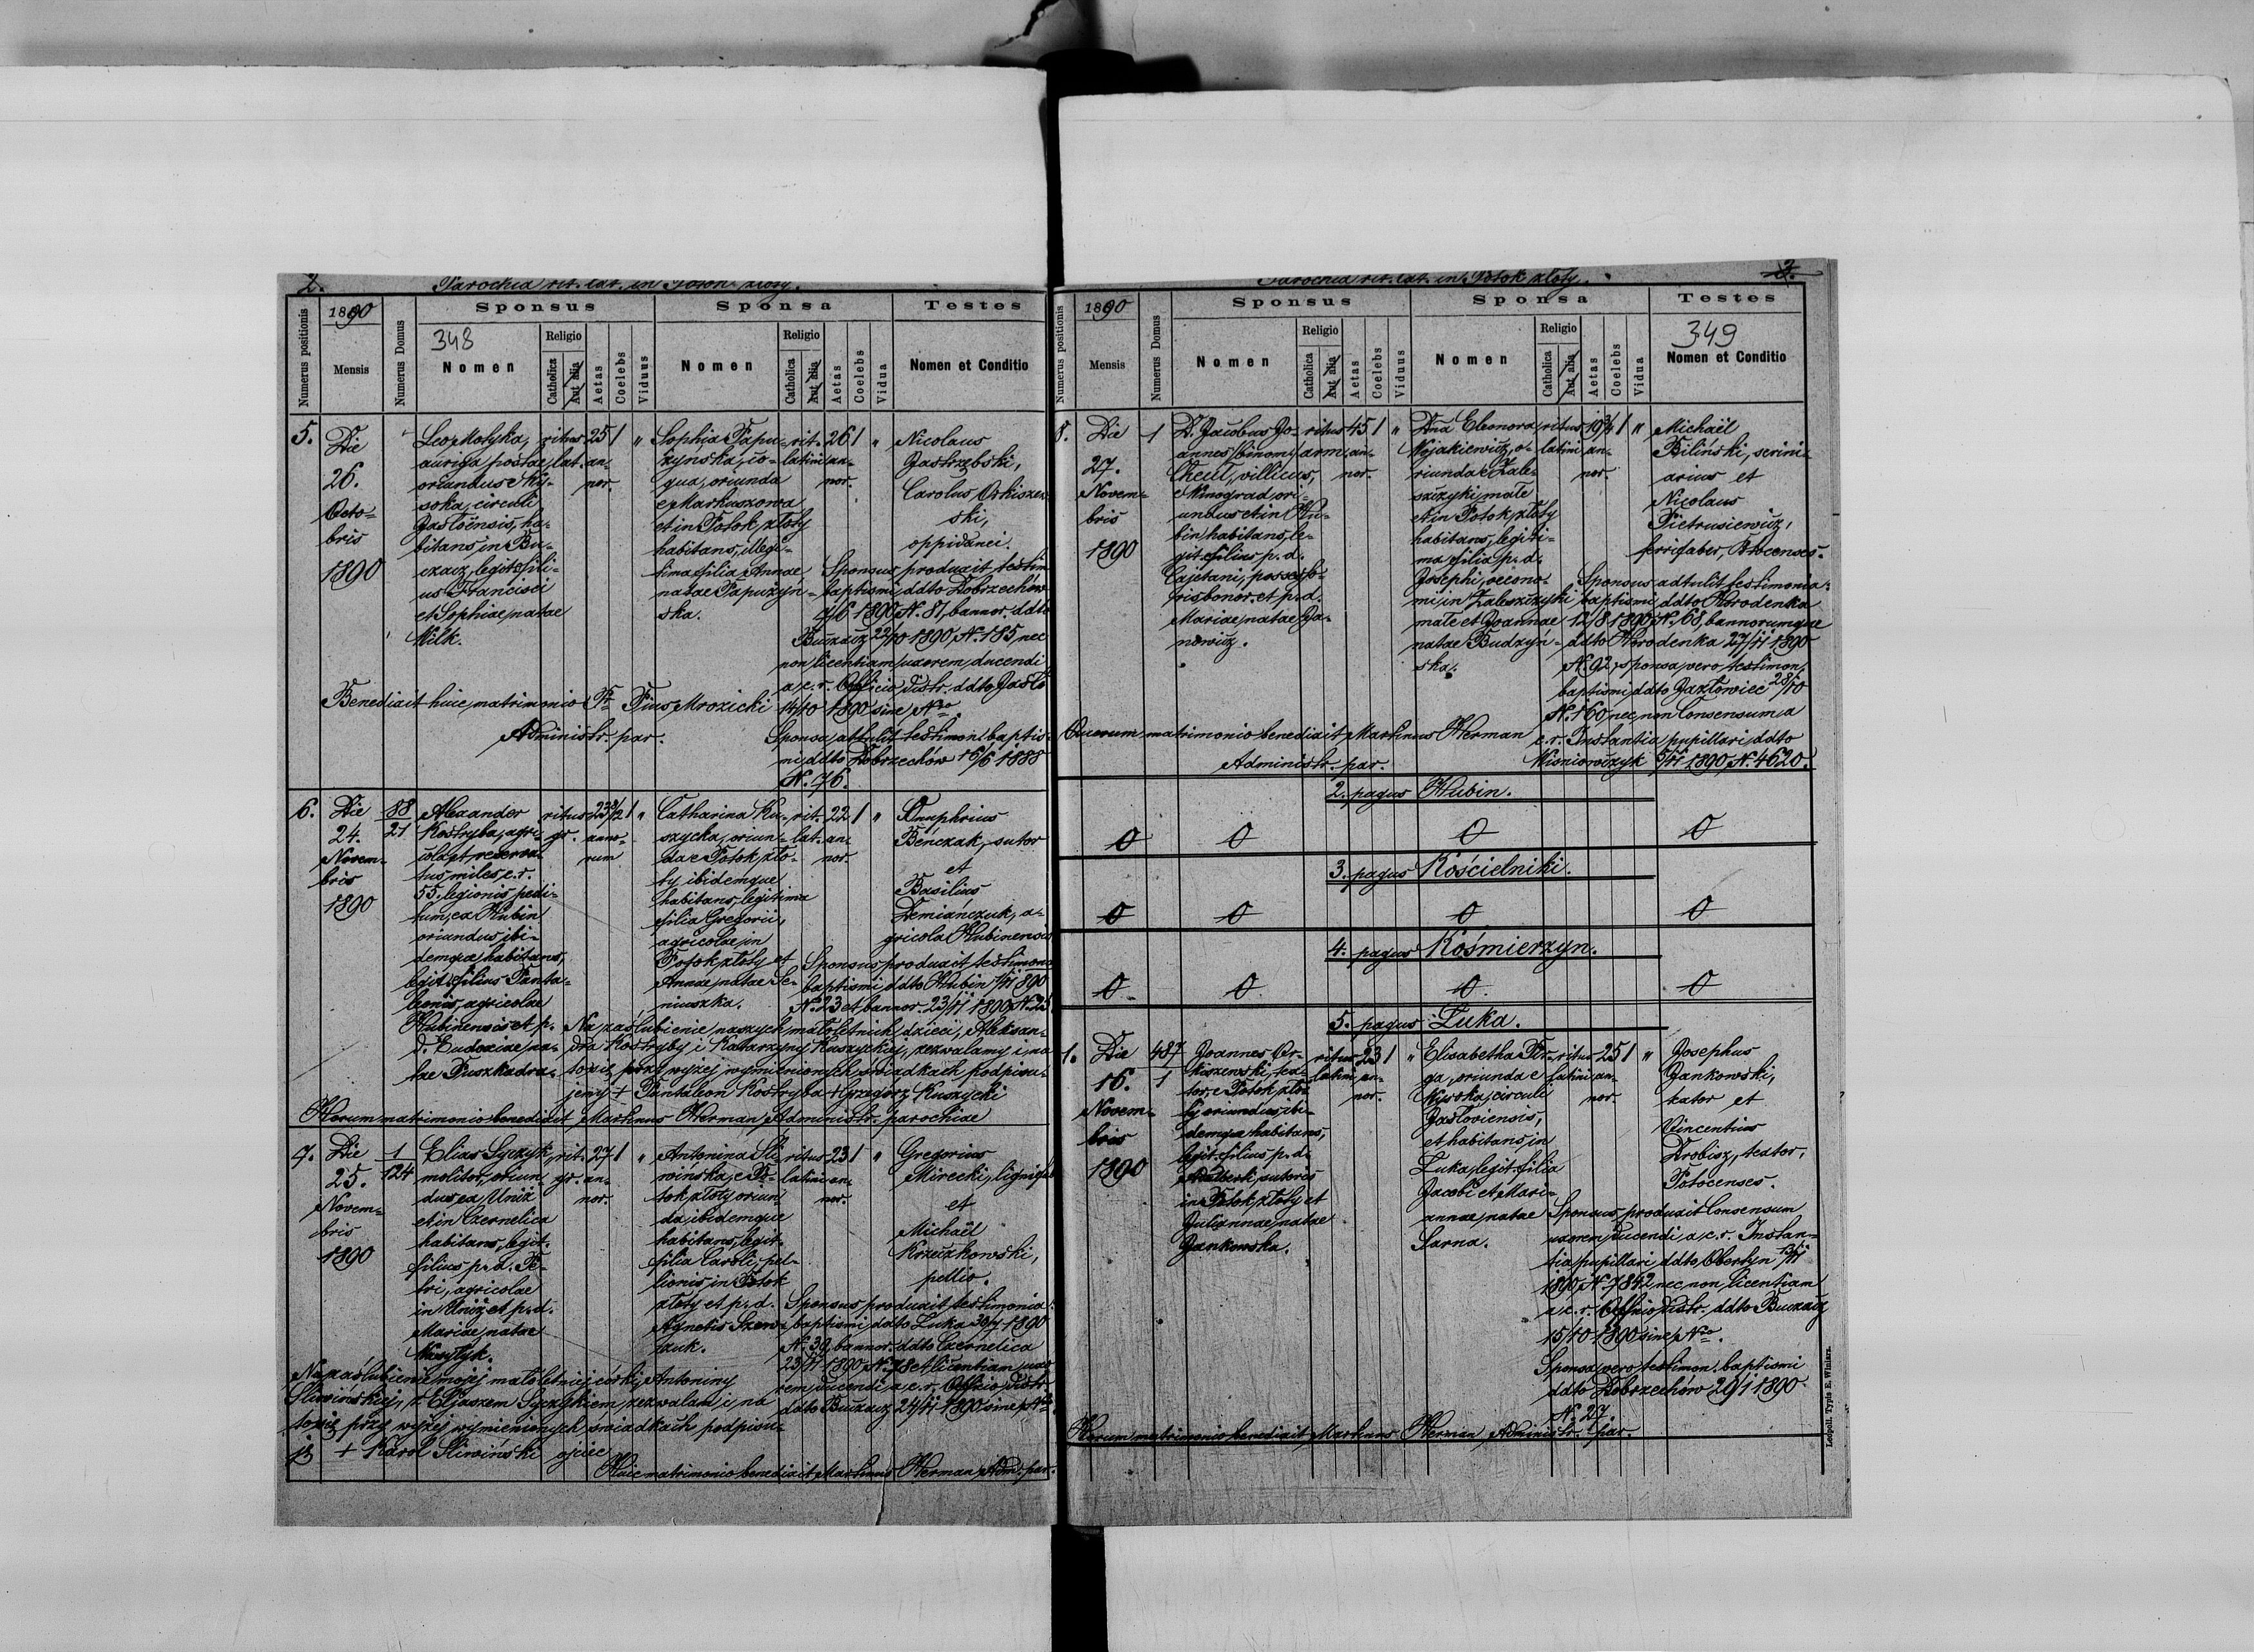 2.
Parochia rit. lat. in Potok złoty.
Numerus positionis
1890
Mensis
Numerus Domus
Sponsus
348
Nomen
Religio
Catholica
Aut alia
Aetas
Coelebs
Viduus
Sponsa
Nomen
Religio
Catholica
Aut alia
Aetas
Coelebs
Vidua
Testes
Nomen et Conditio
5.
Die
26.
Octo-
bris
1890
Leo Motyka,
auriga postae,
oriundus e Wy-
soka, circuli
Jasloënsis, ha-
bitans in Bu-
czacz, legit. fili-
us Francisci
et Sophiae, natae
Wilk.
ritus
lat.
25
an-
nor.
1
"
Sophia Papu-
żyńska, co-
qua, oriunda
e Markuszowa
et in Potok złoty
habitans, illegi-
tima filia Annae
natae Papużyń-
ska.
rit.
latini
26
an-
nor.
1
"
Nicolaus
Jastrzębski,
Carolus Orkiszew-
ski,
oppidanei.
Sponsus produxit testim.
baptismi ddto Dobrzechów
4/6 1890 N. 81, bannor. ddto
Buczacz 22/10 1890, N. 185 nec
non licentiam uxorem ducendi
a c. r. Officio Distr. ddto Jasło
14/10 1890 sine Nro
Sponsa attulit testimon. baptis-
mi ddto Dobrzechów 16/6 1888
N. 76.
Benedixit huic matrimonio Pius Mrozicki
Administr. par.
6.
Die
24.
Novem-
bris
1890
88
21
Alexander
Kostryba, agri-
cola et reserva-
tus miles c. r.
55. legionis pedi-
tum, ex Hubin
oriundus ibi-
demque habitans,
legit. filius Panta-
leonis, agricolae
Hubinensis et p.
d. Eudoxiae, na-
tae Puszkadra-
ritus
gr.
23 8/12
anno-
rum
1
"
Catharina Ku-
szycka, oriun-
da e Potok zło-
ty ibidemque
habitans, legitima
filia Gregorii,
agricolae in
Potok złoty et
Annae, natae Se-
niuszka.
rit.
lat.
22
an-
nor.
1
"
Onuphrius
Beńczak, sutor
et
Basilius
Demiańczuk, a-
gricola Hubinensis
Sponsus produxit testimon.
baptismi ddto Hubin 1/11 890
N. 23 et bannor. 23/11 1890, N. 25
Na zaślubienie naszych małoletnich dzieci, Aleksan-
dra Kostryby i Katarzyny Kuszyckiej, zezwalamy i na
toż się przy wyżej wymienionych świadkach podpisu-
jemy + Pantaleon Kostryba + Grzegorz Kuszycki
Horum matrimonio benedixit Martinus Herman, Administr. parochiae
7.
Die
25.
Novem-
bris
1890
1
124
Elias Syczyk,
molitor, oriun-
dus ex Uniż
et in Czernelica
habitans, legit.
filius p. d. Pe-
tri, agricolae
in Uniż et p. d.
Mariae, natae
Wasylyk.
rit.
gr.
27
an-
nor.
1
"
Antonina Śli-
wińska, e Po-
tok złoty oriun-
da ibidemque
habitans, legit.
filia Caroli, pel-
lionis in Potok
złoty et p. d.
Agnetis Szew-
czuk.
ritus
latini
23
an-
nor.
1
"
Gregorius
Mirecki, lignifab.
et
Michaël
Krzeczkowski,
pellio.
Sponsus produxit testimonia:
baptismi ddto Luka 30/7 1890
N. 39, bannor. ddto Czernelica
23/11 1890 N. 78 et licentiam uxo-
rem ducendi a c. r. Officio Distr.
ddto Buczacz 24/11 1890 sine Nro.
Na zaślubienie mojej małoletniej córki, Antoniny
Śliwińskiej, z Eljaszem Syczykiem zezwalam i na
toż się przy wyżej wymienionych świadkach podpisu-
ję + Karol Śliwiński ojciec
Huic matrimonio benedixit Martinus Herman, Adm. par.
Parochia rit. lat. in Potok złoty.
3.
Numerus positionis
1890
Mensis
Numerus Domus
Sponsus
Nomen
Religio
Catholica
Aut alia
Aetas
Coelebs
Viduus
Sponsa
Nomen
Religio
Catholica
Aut alia
Aetas
Coelebs
Vidua
Testes
349
Nomen et Conditio
8.
Die
27.
Novem-
bris
1890
1
D. Jacobus Jo-
annes (binomi)
villicus,
e Winograd ori-
undus et in Hu-
bin habitans, le-
git. filius p. d.
Cajetani, possesso-
ris bonor. et p. d.
Mariae, natae Ja-
nowicz.
ritus
arm.
45
an-
nor.
1
"
Dna Eleonora
Wojakiewicz, o-
riunda e Zale-
szczyki małe
et in Potok złoty
habitans, legiti-
ma filia p. d.
Josephi, oecono-
mi in Zaleszczyki
małe et Joannae
natae Budzyń-
ska.
ritus
latini
19 3/4
an-
nor.
1
"
Michaël
Biliński, scrini-
arius et
Nicolaus
Pietrusiewicz,
ferrifaber, Potocenses.
Sponsus adtulit testimonia:
baptismi ddto Horodenka
12/8 1890 N. 68, bannorumque
ddto Horodenka 27/11 1890
N. 92, sponsa vero testimon.
baptismi ddto Jazłowiec 28/10
N. 160 nec non Consensum a
c. r. Instantia pupillari ddto
Wiśniowczyk 5/11 1890, N. 4620.
Quorum matrimonio benedixit Martinus Herman
Administr. par.
2. pagus Hubin.
0 0 0 0
3. pagus Kościelniki.
0 0 0 0
4. pagus Kośmierzyn.
0 0 0 0
5. pagus Luka.
1.
Die
16.
Novem-
bris
1890
487
1
Joannes Or-
kiszewski, tea-
tor, e Potok zło-
ty oriundus, ibi-
demque habitans,
legit. filius p. d.
Adalberti, sutoris
in Potok złoty et
Juliannae, natae
Jankowska.
ritus
latini
23
an-
nor.
1
"
Elisabetha Fir-
ga, oriunda e
Wysoka, circuli
Jasloviensis,
et habitans in
Luka, legit. filia
Jacobi et Mari-
annae, natae
Sarna.
ritus
latini
25
an-
nor.
1
"
Josephus
Jankowski,
et
Vincentius
Drobisz, teator,
Potocenses.
Sponsus produxit Consensum
uxorem ducendi a c. r. Instan-
tia pupillari ddto Obertyn
1890, N. 7842 nec non licentiam
a c. r. Officio Distr. ddto Buczacz
15/10 1890 sine Nro.
Sponsa vero testimon. baptismi
ddto Dobrzechów 29/1 1890
N. 27.
Horum matrimonio benedixit Martinus Herman, Administr. par.
Leopoli. Typis E. Winiarz.